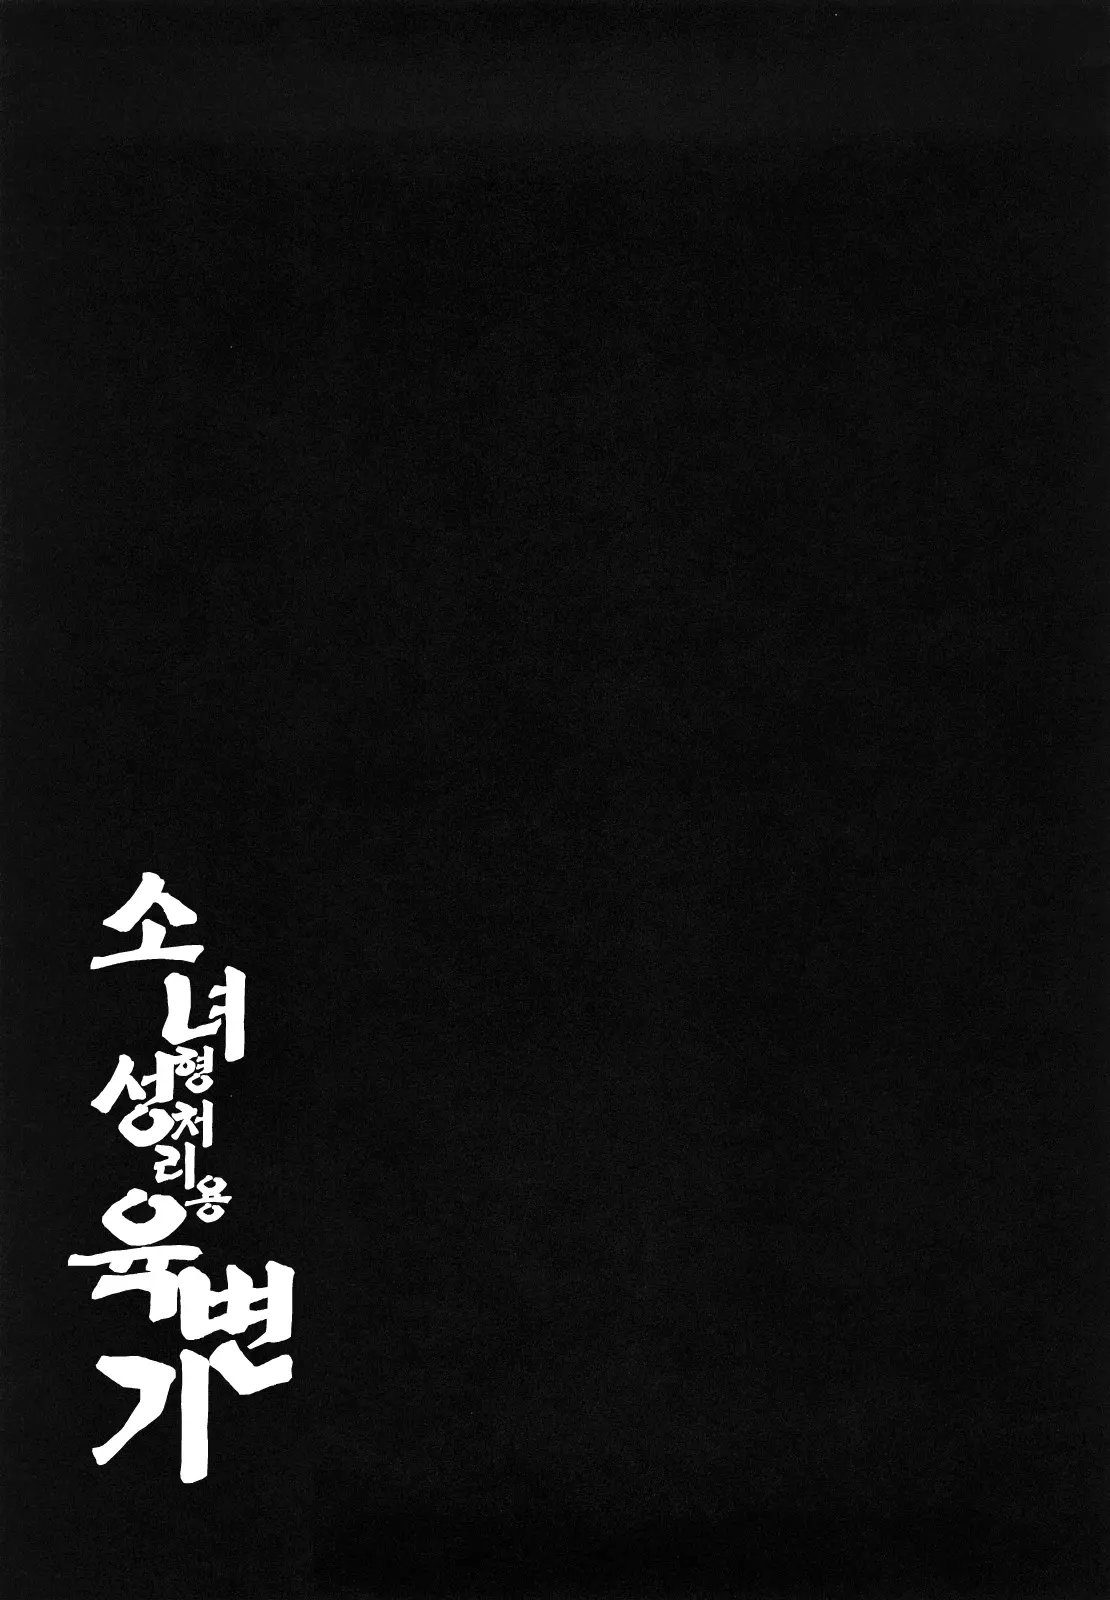 소녀형
성처리용
육변기